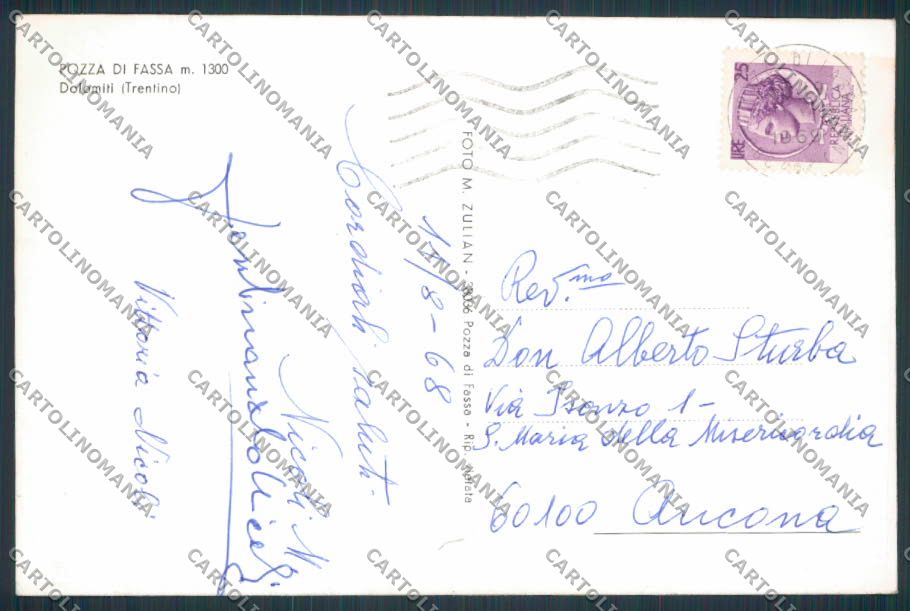 POZZA DI FASSA m. 1300
Dolomiti (Trentino)
LIRE 25
REPUBBLICA
ITALIANA
FOTO M. ZULIAN - 38036 Pozza di Fassa - Rip. Vietata
14/8-68
Cordiali saluti
Nicoli N.
Vittoria Nicoli
Rev.mo
Don Alberto Sturba
Via Isonzo 1-
S. Maria della Misericordia
60100 Ancona
CARTOLINOMANIA